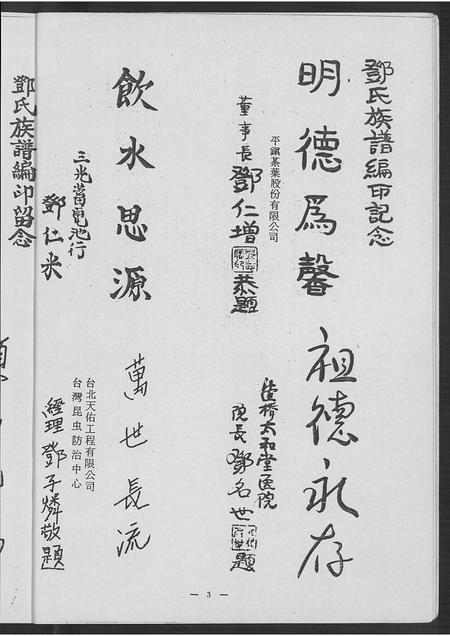 鄧氏族譜編印記念
明德為馨
平鎮茶葉股份有限公司
董事長 鄧仁增 恭題
祖德永存
造橋太和堂医院
院長 鄧名世 題
飲水思源
三光蓄電池行
鄧仁米
萬世長流
台北天佑工程有限公司
台灣昆虫防治中心
經理 鄧子燐敬題
鄧氏族譜編印留念
— 3 —